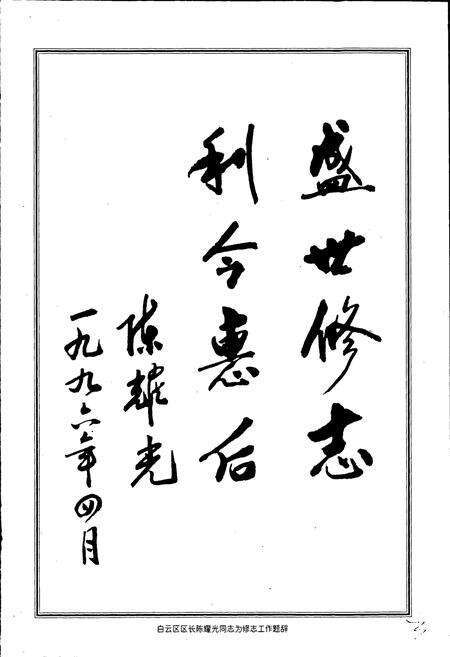 盛世修志
利今惠后
陈耀光
一九九六年四月
白云区区长陈耀光同志为修志工作题辞